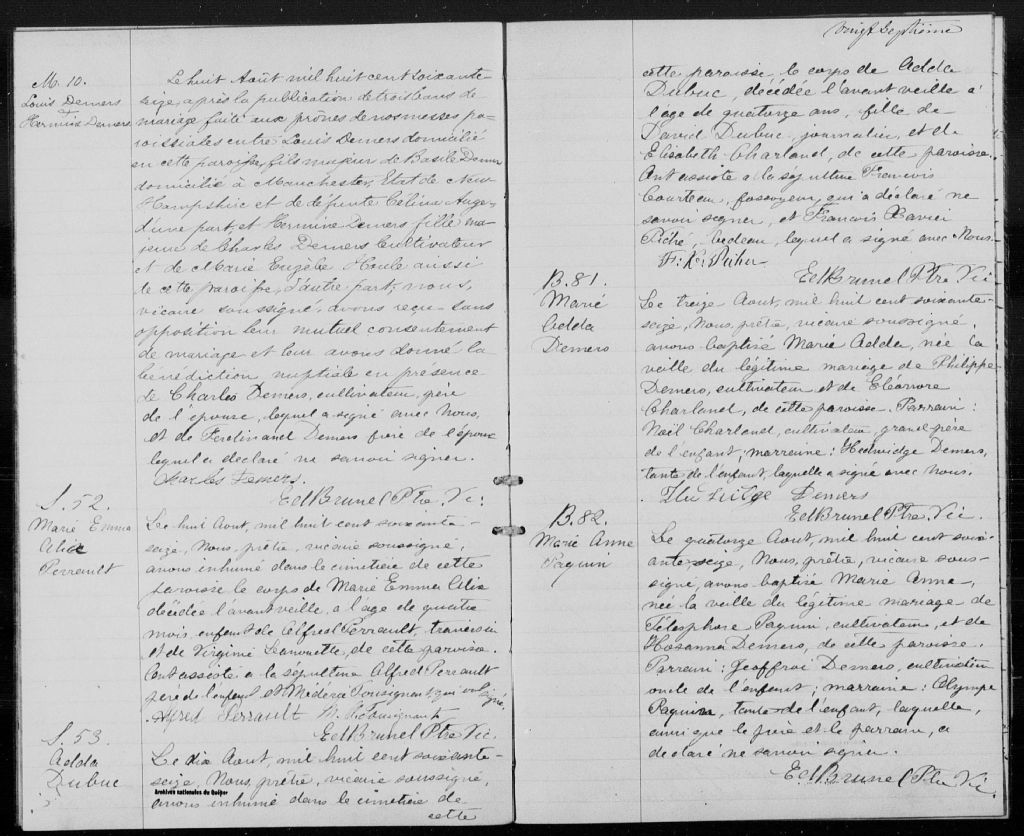 M. 10.
Louis Demers
&
Hermine Demers
Le huit Août mil huit cent soixante-
seize, après la publication de trois bans de
mariage faite aux prônes de nos messes pa-
roissiales entre Louis Demers domicilié
en cette paroisse, fils majeur de Basile Demers
domicilié à Manchester, Etat de New
Hampshire et de défunte Céline Auger
d'une part, et Hermine Demers fille ma-
jeure de Charles Demers Cultivateur
et de Marie Eugèle Houle aussi
de cette paroisse, d'autre part, nous,
vicaire soussigné, avons reçu sans
opposition leur mutuel consentement
de mariage et leur avons donné la
bénédiction nuptiale en présence
de Charles Demers, cultivateur, père
de l'épouse, lequel a signé avec Nous,
et de Ferdinand Demers frère de l'époux
lequel a déclaré ne savoir signer.
Charles Demers.
Ed Brunel Ptre Vic.
S. 52.
Marie Emma
Alice
Perrault
Le huit Aout, mil huit cent soixante-
seize, Nous, prêtre, vicaire soussigné,
avons inhumé dans le cimetière de cette
paroisse le corps de Marie Emma Alix
décédée l'avant veille, a l'âge de quatre
mois, enfant de Alfred Perrault,
et de Virginie Lanouette, de cette paroisse.
Ont assisté à la sépulture Alfred Perrault
père de l'enfant et Médéric Tousignant, qui ont signé.
Alfred Perrault M. Tousignant
Ed Brunel Ptre Vic.
S. 53.
Adda
Dubuc
Le dix Aout, mil huit cent soixante-
seize, Nous, prêtre, vicaire soussigné,
Archives nationales du Québec
avons inhumé dans le cimetière de
cette
vingt septième
cette paroisse, le corps de Adda
Dubuc, décédée l'avant veille à
l'âge de quatorze ans, fille de
David Dubuc, journalier, et de
Elisabeth Charland, de cette paroisse.
Ont assisté a la sépulture François
Courteau, fossoyeur, qui a déclaré ne
savoir signer, et François Xavier
Piché, bedeau, lequel a signé avec Nous.
F. X. Piché
Ed Brunel Ptre Vic
B. 81.
Marie
Adda
Demers
Le treize Aout, mil huit cent soixante-
seize, Nous, prêtre, vicaire soussigné,
avons baptisé Marie Adda, née la
veille du légitime mariage de Philippe
Demers, cultivateur et de Eléonore
Charland, de cette paroisse. Parrain:
Noël Charland, cultivateur, grand père
de l'enfant; marraine: Hedwidge Demers,
tante de l'enfant, laquelle a signé avec nous.
Demers
Ed Brunel Ptre Vic.
B. 82.
Marie Anne
Paquin
Le quatorze Aout, mil huit cent soix-
ante-seize, Nous, prêtre, vicaire sous-
signé, avons baptisé Marie Anne,
née la veille du légitime mariage de
Télesphore Paquin, cultivateur, et de
Hosanna Demers, de cette paroisse.
Parrain: Geoffroi Demers, cultivateur
oncle de l'enfant; marraine: Olympe
Paquin, tante de l'enfant, laquelle,
ainsi que le père et le parrain, a
déclaré ne savoir signer.
Ed Brunel Ptre Vic